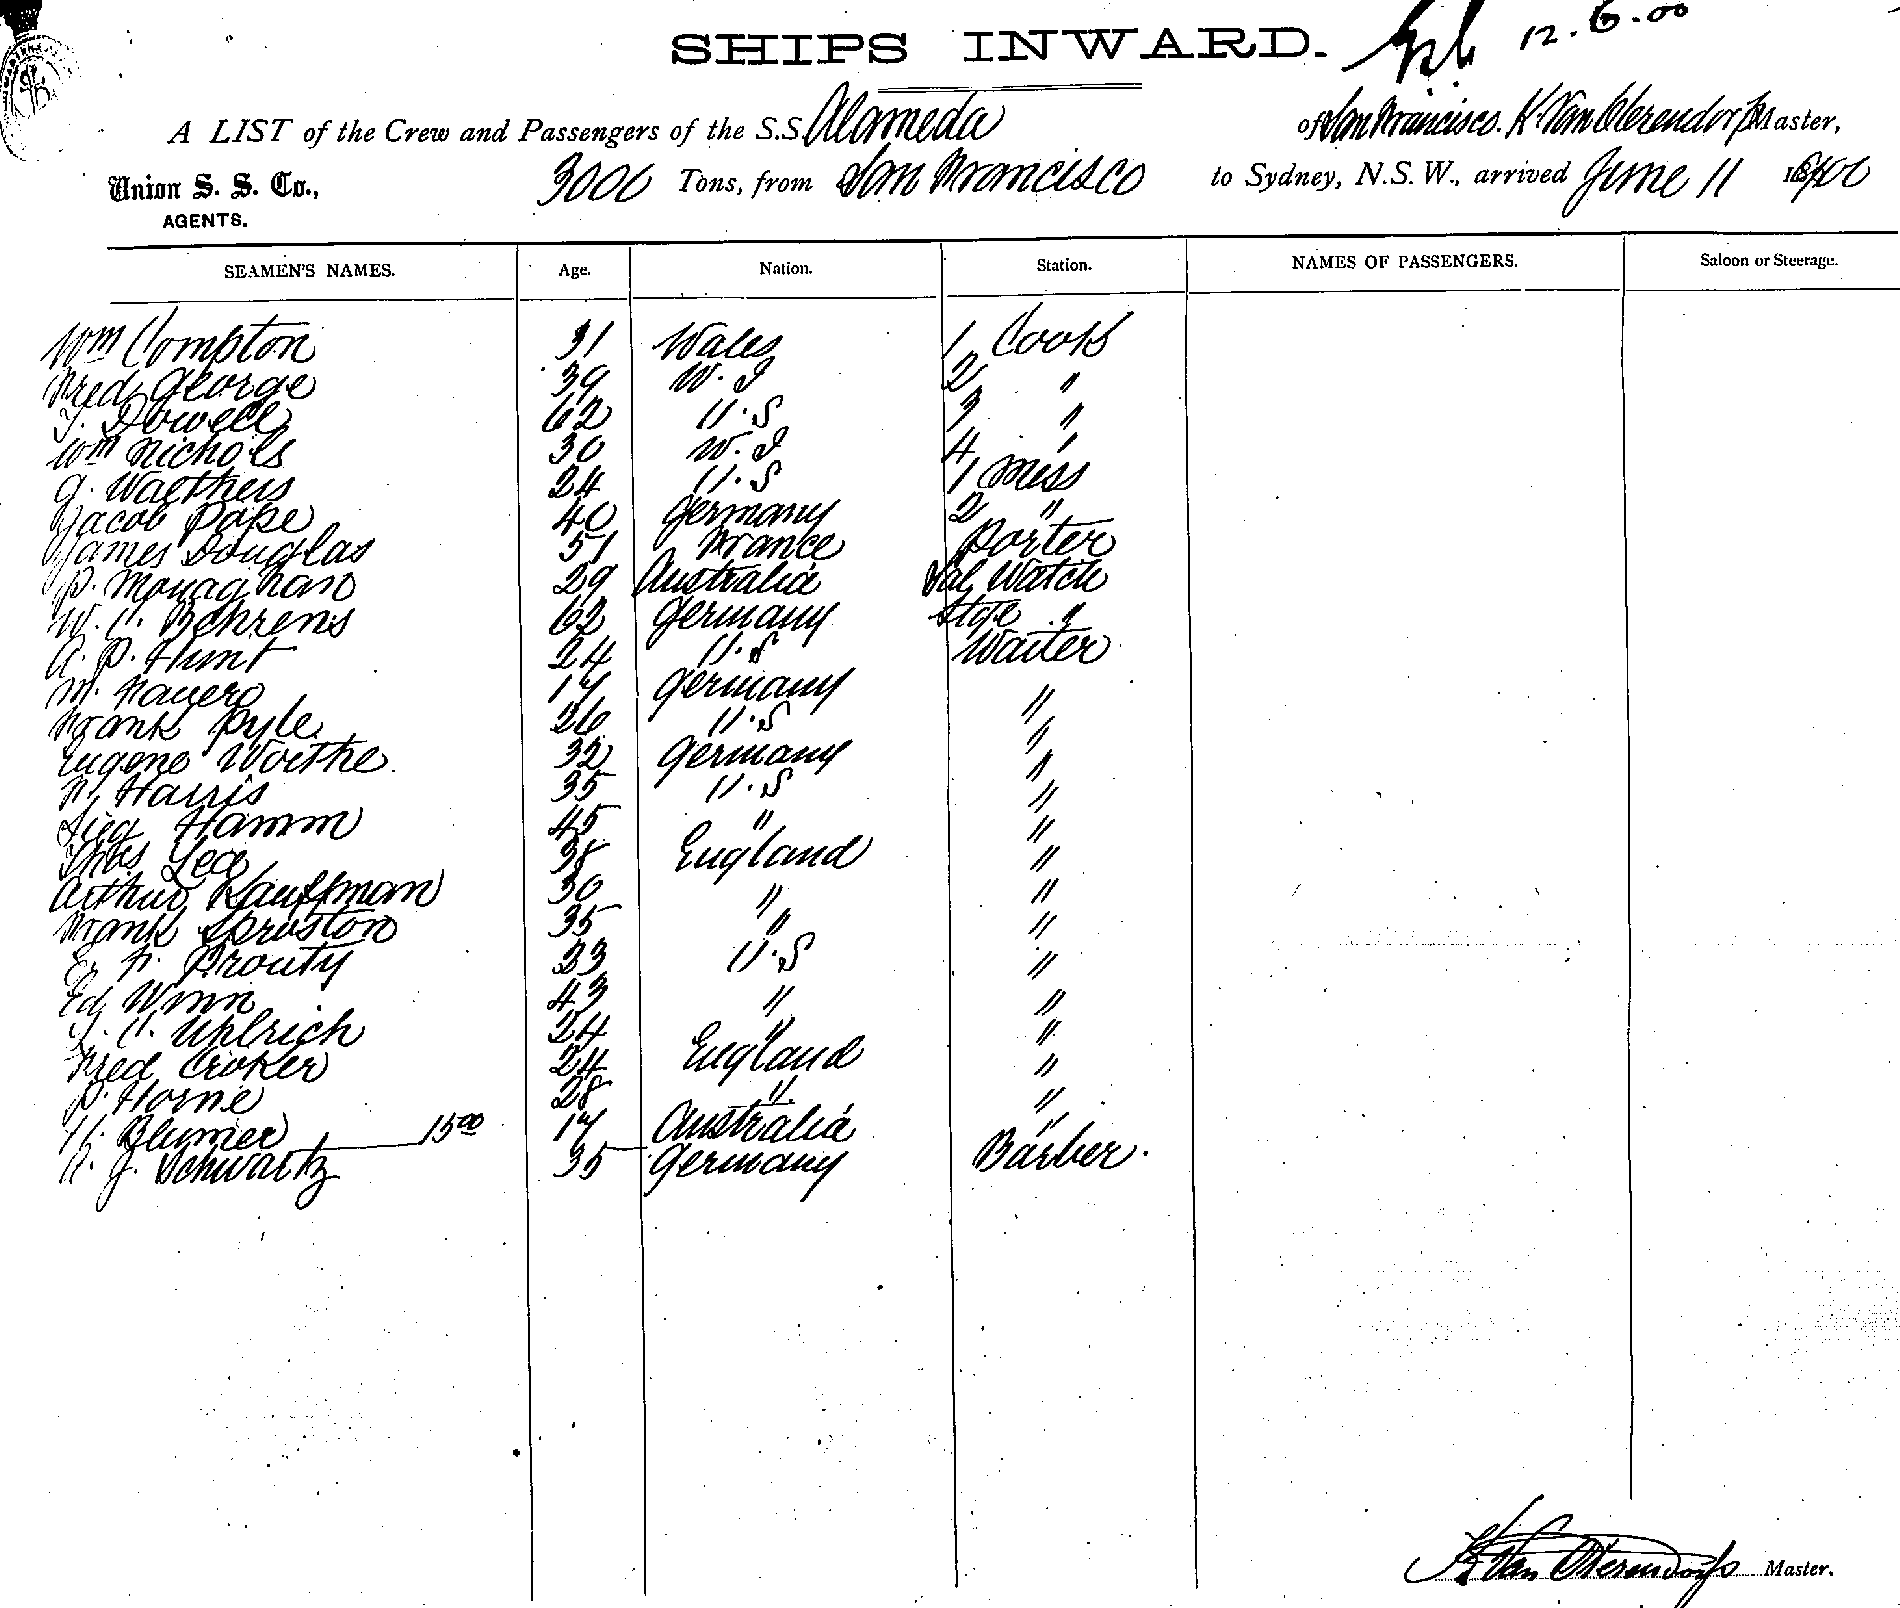 SHIPS INWARD. 12.6.00
A LIST of the Crew and Passengers of the S.S. Alameda of San Francisco. K. Van Oterendorp Master,
Union S. S. Co., 3000 Tons, from San Francisco to Sydney, N.S.W., arrived June 11 1900
AGENTS.
SEAMEN'S NAMES. Age. Nation. Station. NAMES OF PASSENGERS. Saloon or Steerage.
Wm Compton 31 Wales 1 Cook
Fred George 39 W. I 2 "
T. Dowell 62 U.S 3 "
Wm Nichols 30 W. I 4 "
G. Walthers 24 U.S 1 Mess
Jacob Pape 40 Germany 2 "
James Douglas 51 France Porter
P. Monaghan 29 Australia Sal Watch
W. C. Behrens 62 Germany Stge "
A. P. Hunt 24 U.S Waiter
M. 17 Germany "
Frank Pyle 26 U.S "
Eugene Worthe 32 Germany "
Harris 35 U.S "
Sieg Hamm 45 " "
Thos Lea 38 England "
Arthur Kauffman 30 " "
Frank Spruston 35 " "
F. Prouty 33 U.S "
Ed Winn 43 " "
C. Uhlrich 24 " "
Fred Croker 24 England "
P. Horne 28 " "
H. Blumer 15 00 17 Australia "
J. Schwartz 35 Germany Barber.
K Van Oterendorp Master.